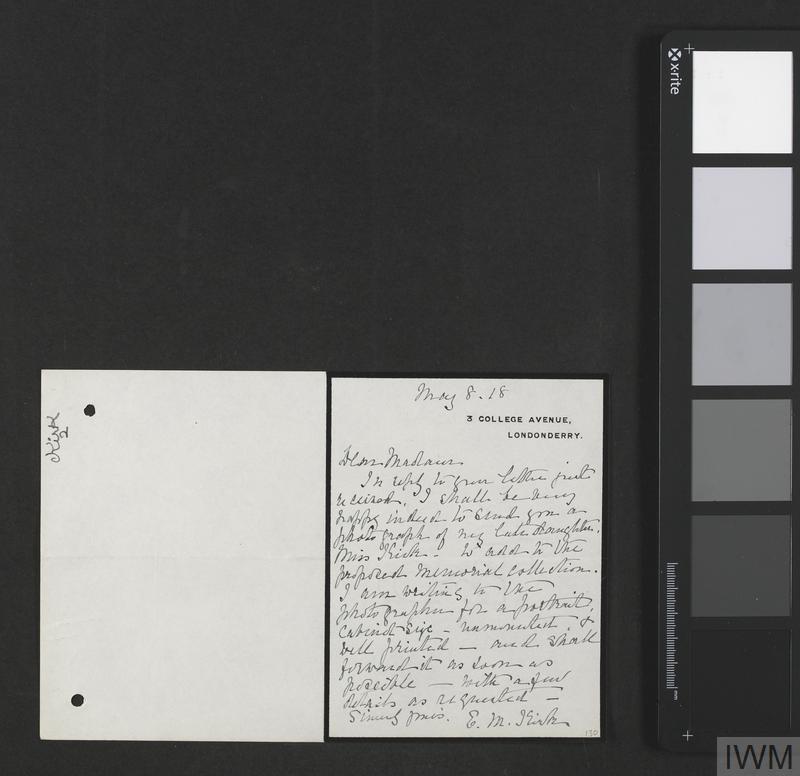 Kirk
2
May 8. 18
3 COLLEGE AVENUE,
LONDONDERRY.
Dear Madam
In reply to your letter just
received, I shall be very
happy indeed to send you a
photograph of my late daughter,
Miss Kirk - to add to the
proposed memorial collection.
I am writing to the
photographer for a portrait,
Cabinet size - unmounted &
well printed - and shall
forward it as soon as
possible - with a few
details as requested -
Sincerely yours. E. M. Kirk
130
x-rite
mm
IWM